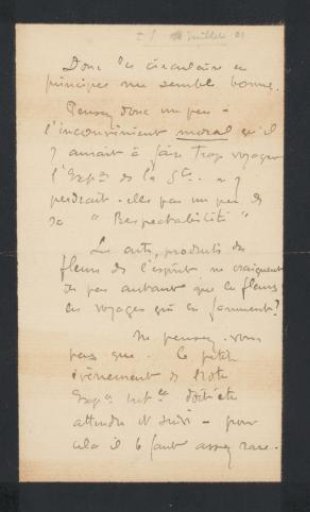 juillet 91
Donc la circulaire en
principe me semble bonne.
Pensez donc un peu à
l'inconvénient moral qu'il
y aurait à faire trop voyager
l'Expon de la Sté. n'y
perdrait-elles pas un peu de
sa "Respectabilité"
Les arts, produits des
fleurs de l'esprit ne craignent
ils pas autant que les fleurs
les voyages qui les
Ne pensez-vous
pas que. Ce petit
évènement de Notre
Expon doit être
attendu et suivi - pour
cela il le faut assez rare.